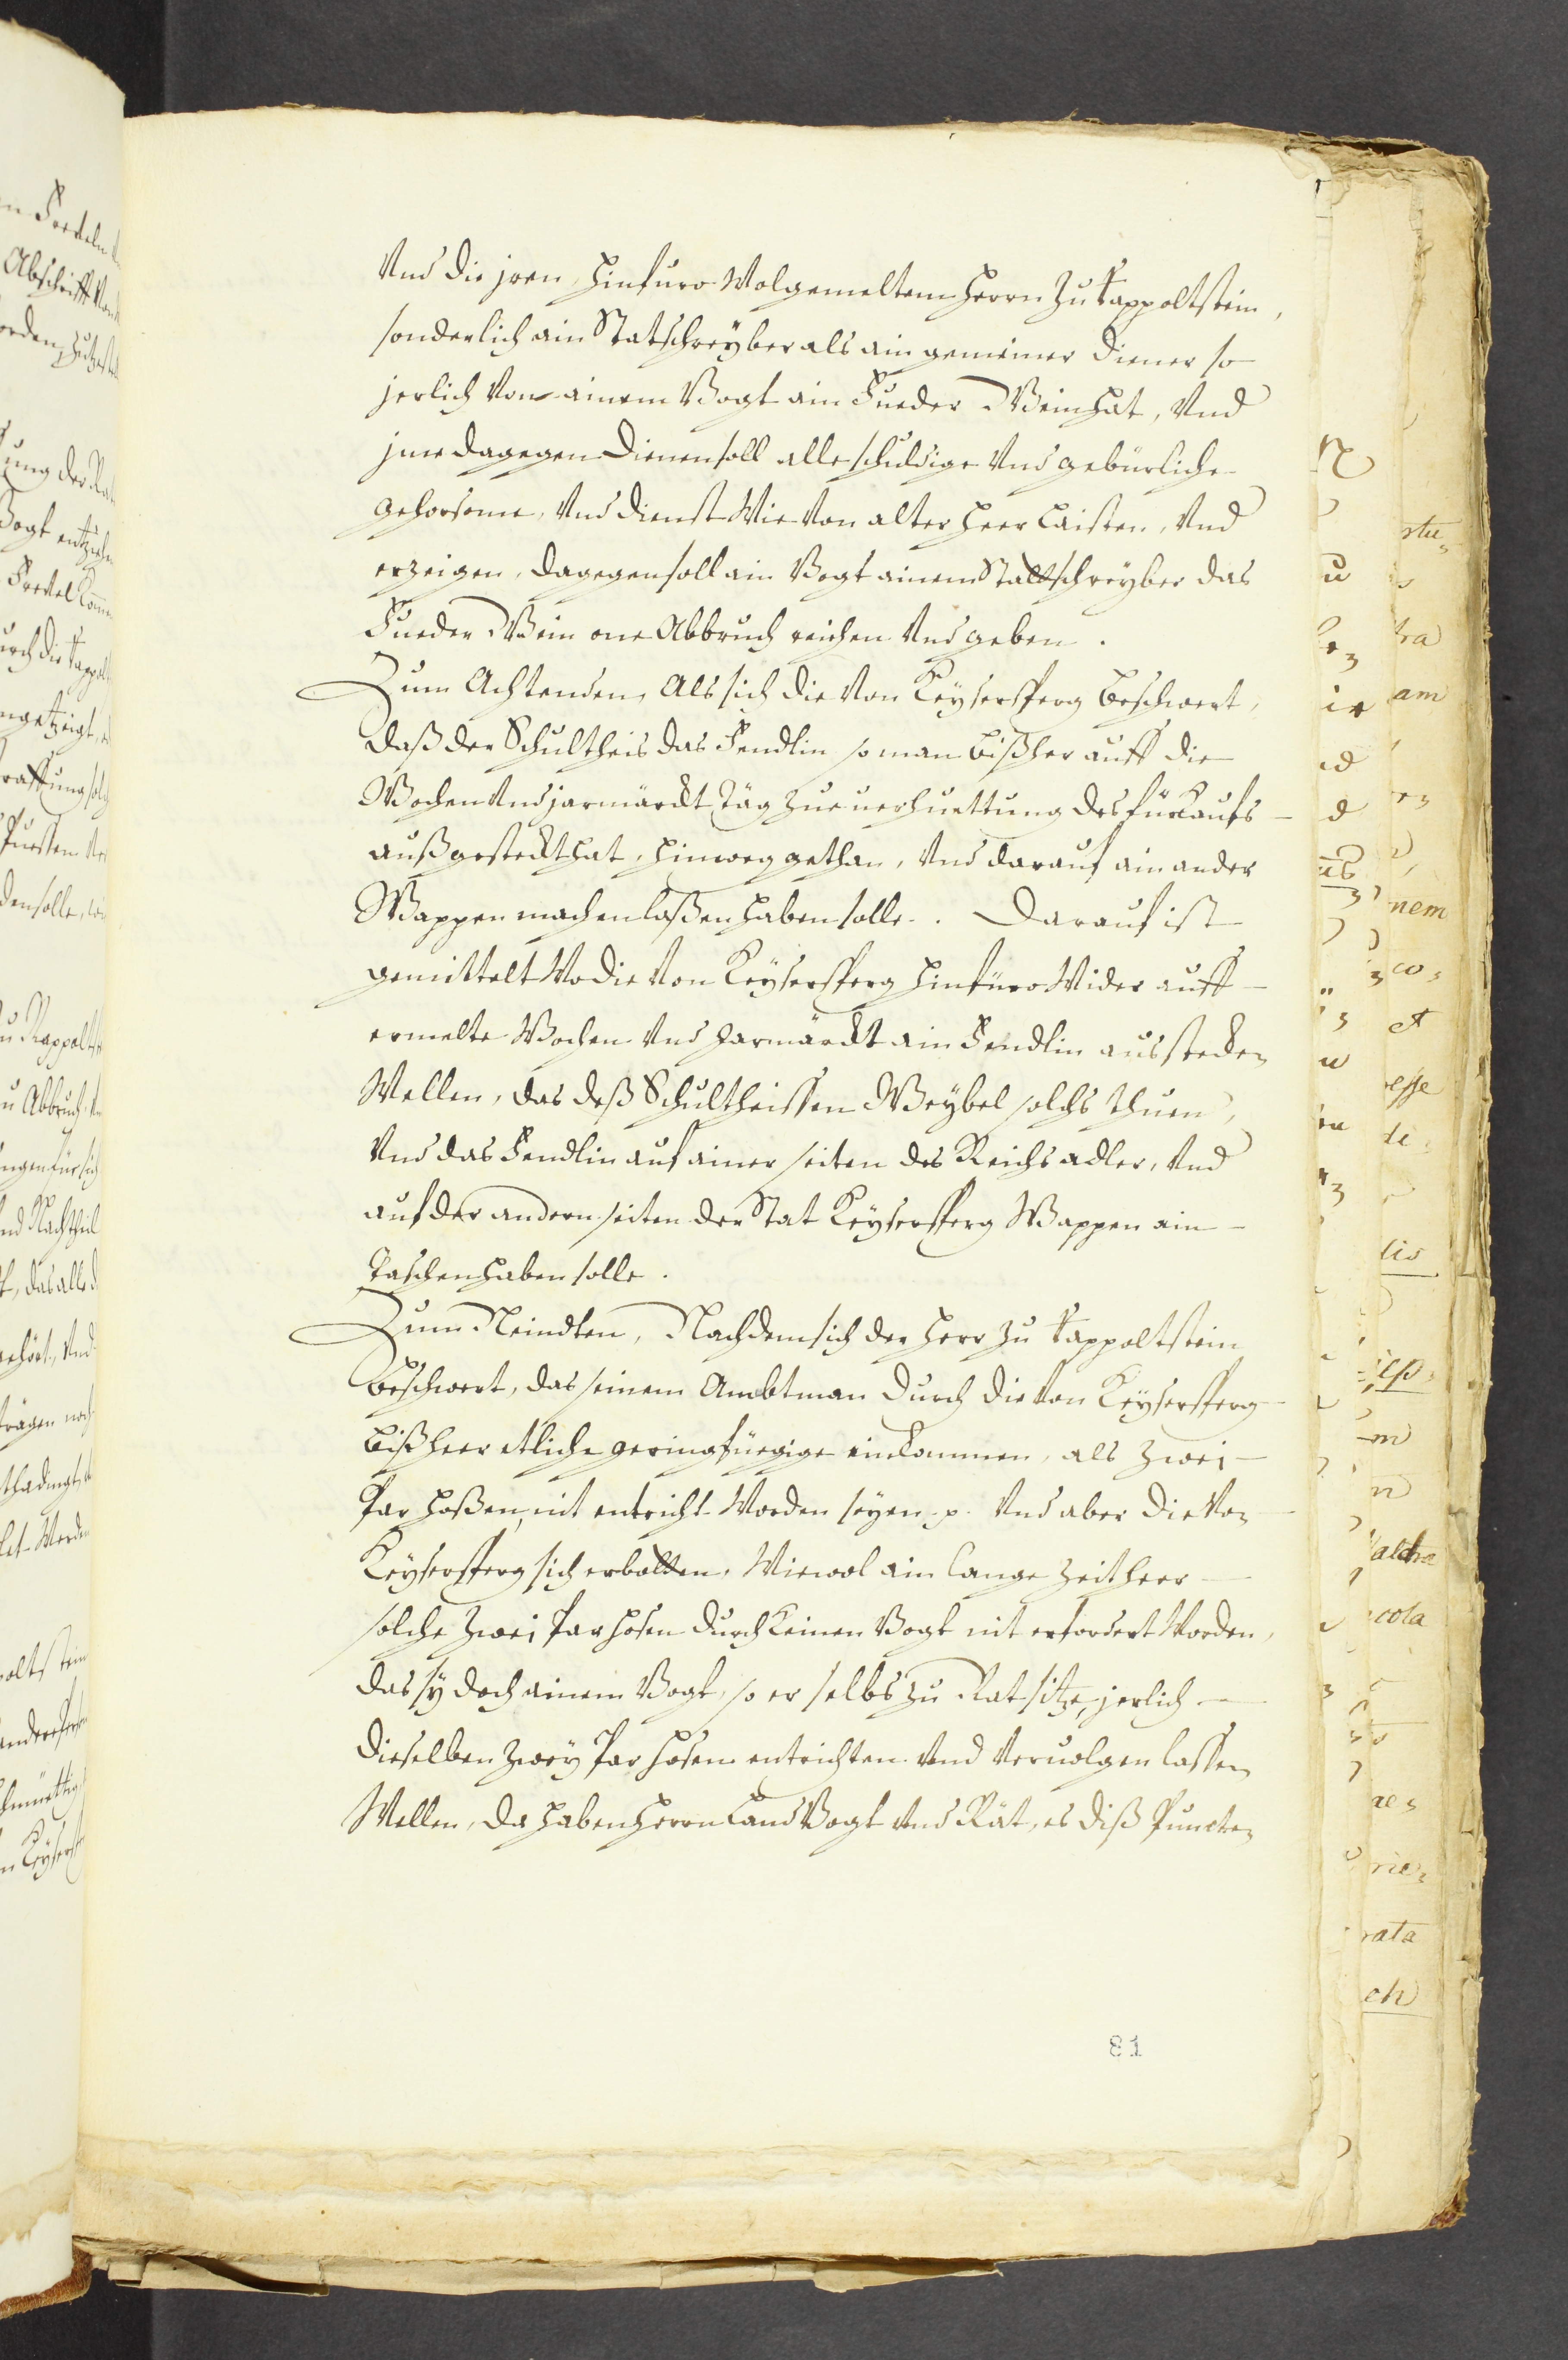 Vnd die jren hinfuro Wolgemeltem Herrn Zu Rappoltstein,
sonderlich ain Statschreyber als ain gemeiner diener so
jerlich Von ainem Vogt ain Fueder Wein hat, Vnd
jme dagegen dienen soll alle schuldige Vnd gebürliche
gehorsame, Vnd dienst Wie Von alter heer Laisten, Vnd
erzeigen, dagegen soll ain Vogt ainem Stattschreyber das
Fueder Wein one Abbruch reichen Vnd geben.
Zum Achtenden, Als sich die Von Keysersperg beschwert,
daß der Schultheis das Fendlin so man bißher auff die
Wochen Vnd jarmärckt Täg zu uerhuettung des fürkaufs
außgesteckt hat, hinweg gethan, Vnd darauf ain ander
Wappen machen laßen haben solle. Darauf ist
gemittelt Wo die Von Keysersperg hinfüro Wider auff
ermelte Wochen Vnd Jarmärckt ain Fendlin ausstecken
Wellen, das deß Schultheissen Weybel solchs thuen,
Vnd das Fendlin auf ainer seiten des Reichs adler, Vnd
auf der andern seiten der Stat Keysersperg Wappen ain
Taschen haben solle.
Zum Neindten, Nachdem sich der Herr zu Rappoltstein
beschwert, das seinem Ambtman durch die Von Keysersperg
bißheer etliche geringfüegige einkommen, als zwei
Par hoßen, nit entricht Worden seyen p. Vnd aber die Von
Keysersperg sich erbotten, Wiewol ain lange Zeit heer
solche zwei Par hosen durch keinen Vogt nit erfordert Worden,
das sy doch ainem Vogt, so er selbs zu Rat sitze, jerlich
dieselben zwey Par hosen entrichten Vnd Veruolgen lassen
Wellen, da haben Herrn Land Vogt Vnd Rät, es diß Puncten
81